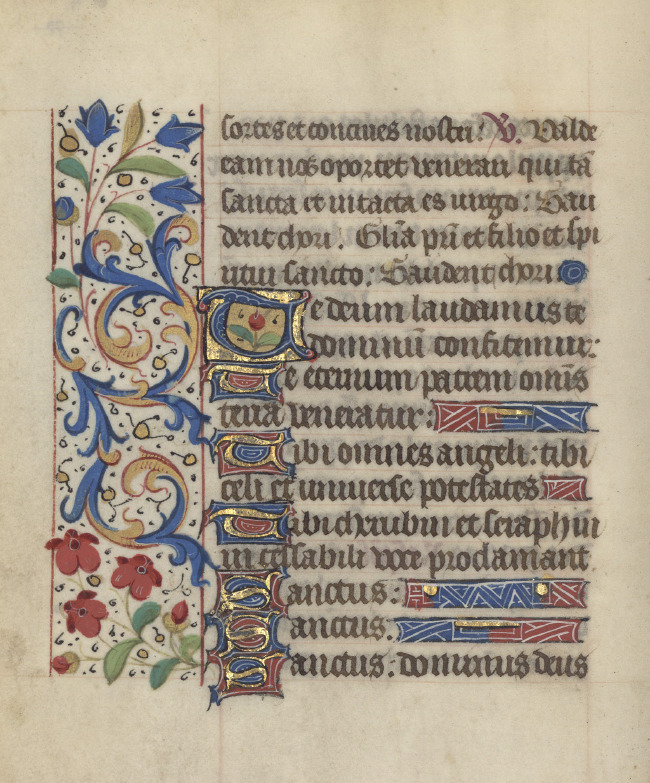 sortes et conciues nostri. V. Valde
eam nos oportet venerari qui tā
sancta et intacta es uirgo: Gau
dent chori. Gl̄ia pr̄i et filio et sp̄i
ritui sancto: Gaudent chori
Te deum laudamus te
dominū confitemur:
Te eternum patrem om̄is
terra veneratur:
Tibi omnes angeli: tibi
celi et uniuerse potestates
Tibi cherubin et seraphin
incessabili voce proclamant
Sanctus:
Sanctus.
Sanctus: dominus deus